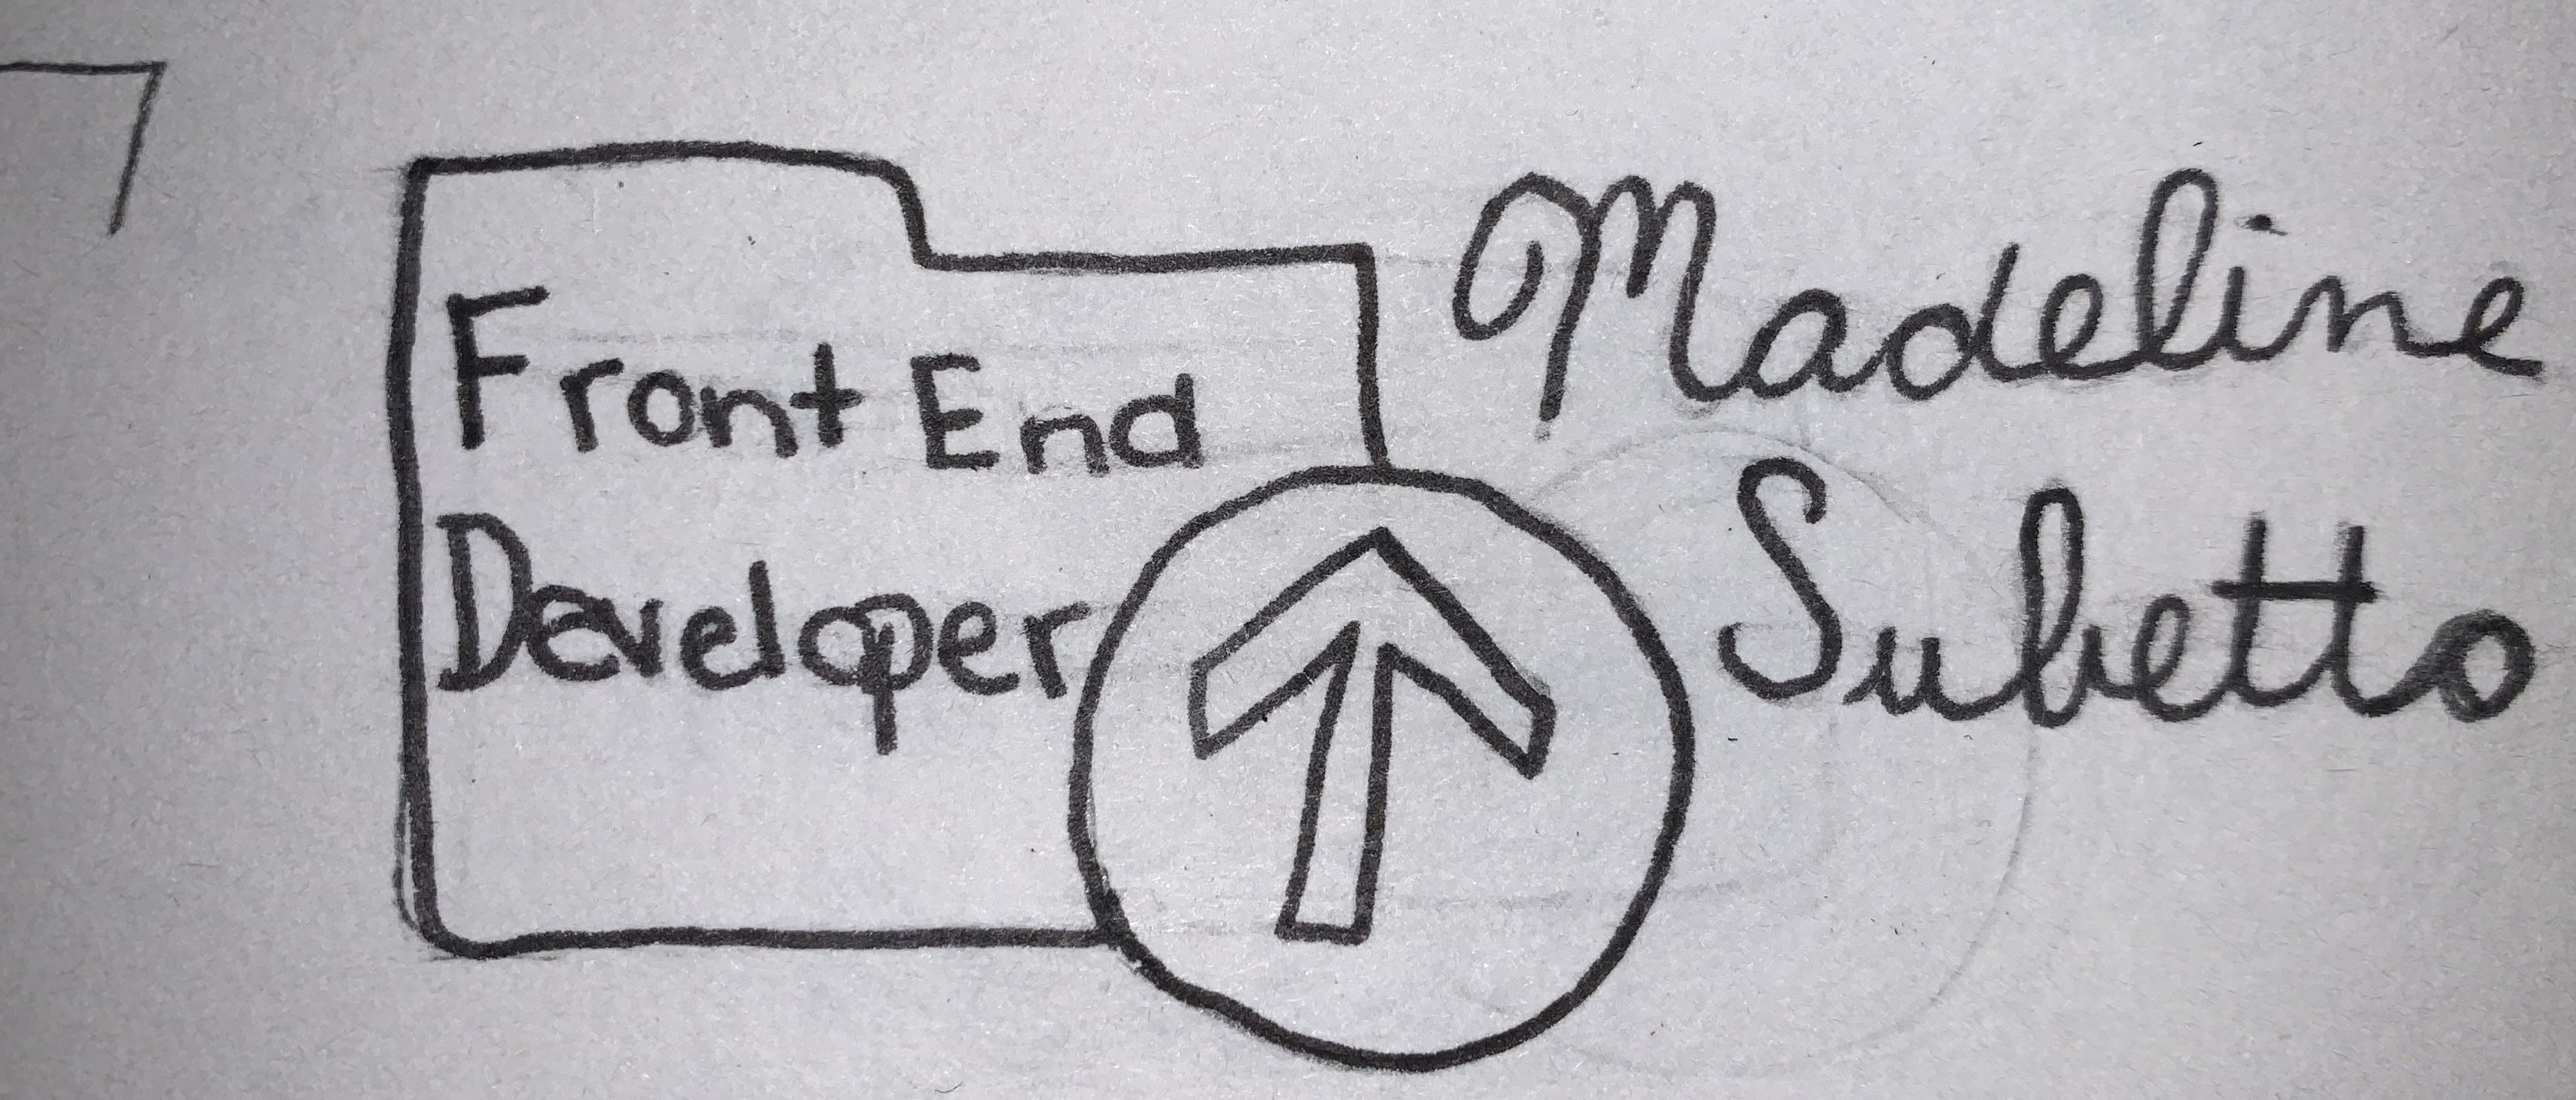 Front End
Developer
Madeline
Subetto